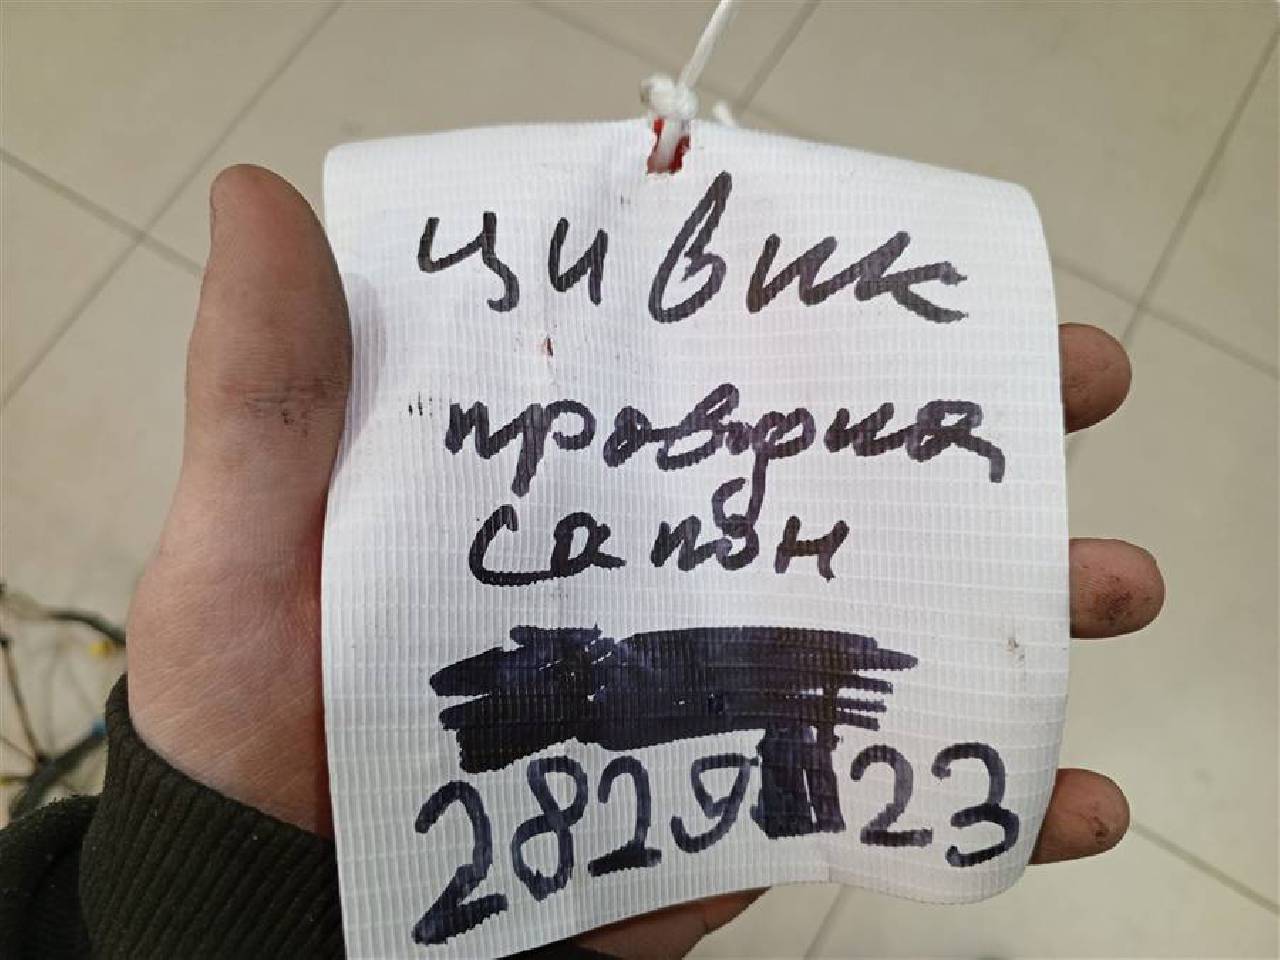 цивик
проводка
салон
2829 23